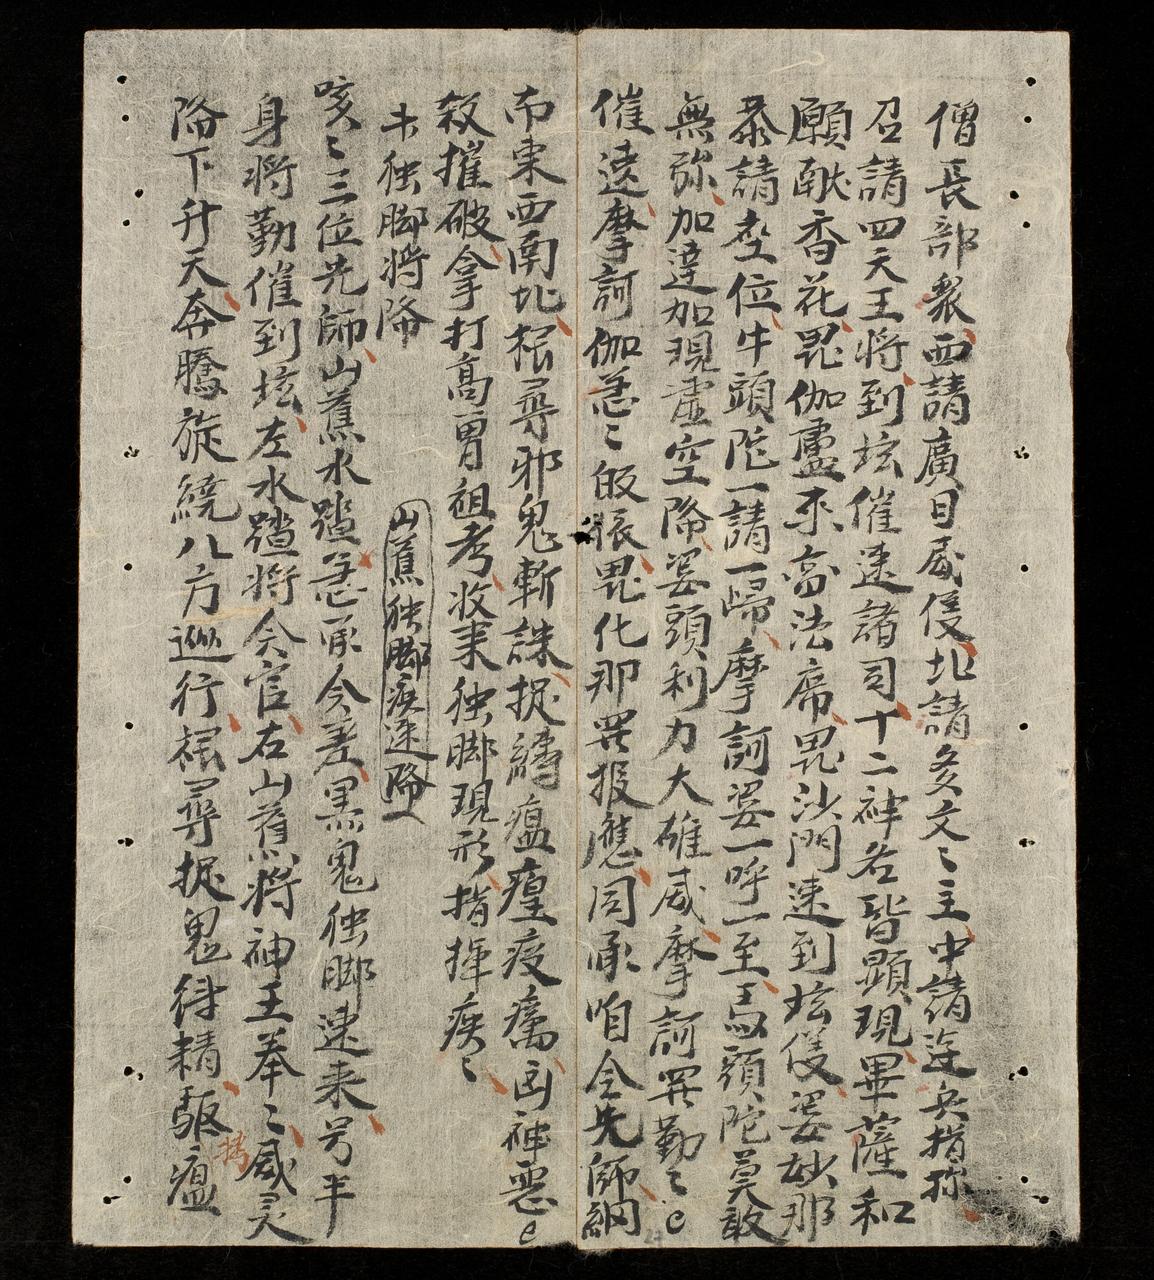 僧長部眾西請廣目威侵北請多文〻主中請速兵指弥
召請四天王將到坛催速諸司十二神各皆顯現畢薩和
願献香花毘伽盧来高法席毘沙門速到坛侵娑妙那
恭請坐位牛頭陀一請一歸摩訶娑一呼一至馬頭陀莫敢
無弥加達加現虛空降娑頭利力大雄威摩訶哭勤〻
催遶摩訶伽急〻的振毘化那哭报應同承咱令先師綱
布東西南北根尋邪鬼斬誅捉縛瘟瘴疫癘凶神惡
殺摧破拿打高曾祖考收来独脚現形指揮疾〻
独脚將降
山蕉独脚疾速降
咳〻三位先師山蕉水踏急承令差黑鬼独脚速来号半
身將勤催到坛左水踏將令官右山蕉將神王奉〻威灵
降下升天奔騰旋繞八方巡行根尋捉鬼待精駆瘟